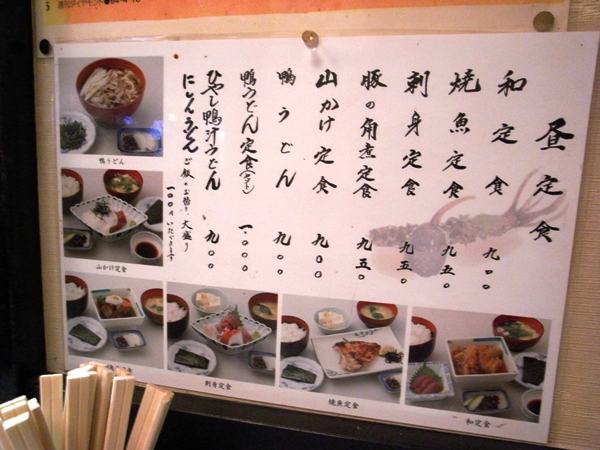 昼定食
和定食 九〇〇
焼魚定食 九五〇
刺身定食 九五〇
豚の角煮定食 九五〇
山かけ定食 九〇〇
鴨うどん 九〇〇
鴨うどん定食 一、〇〇〇
ひやし鴨汁うどん
にしんうどん 九〇〇
ご飯のお替り、大盛り
一〇〇円いただきます
鴨うどん
山かけ定食
刺身定食
焼魚定食
和定食